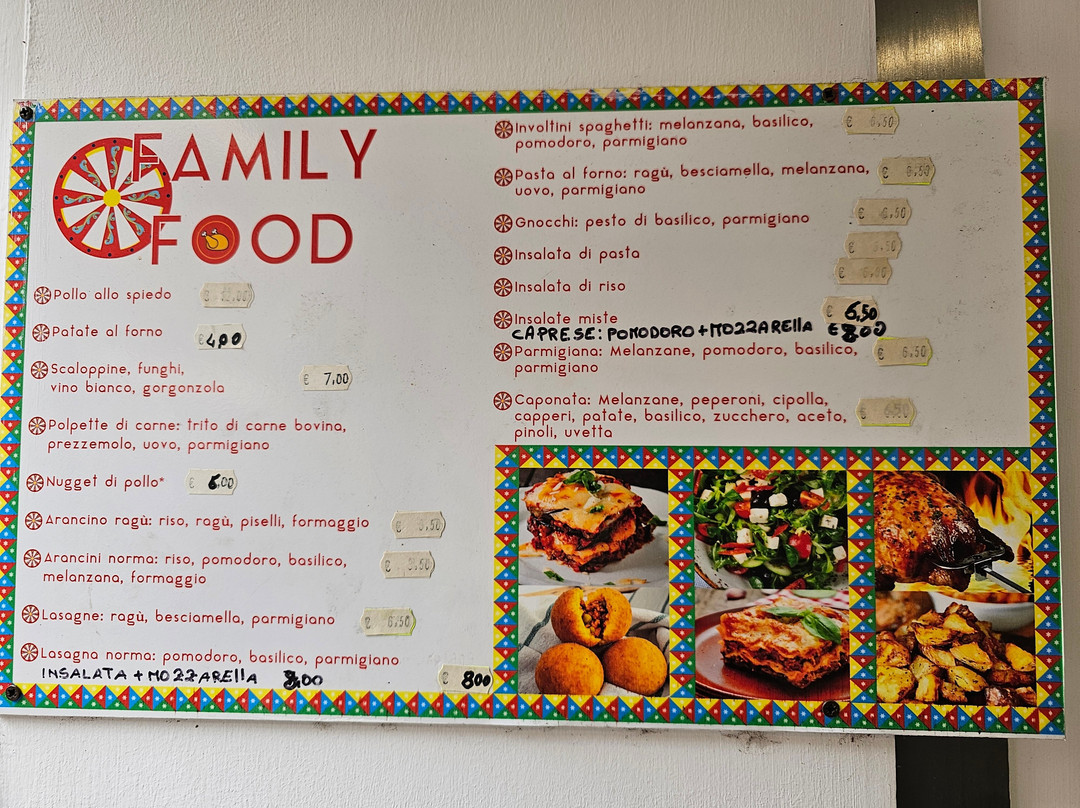 FAMILY
FOOD
Pollo allo spiedo
Patate al forno € 4,00
Scaloppine, funghi,
vino bianco, gorgonzola € 7,00
Polpette di carne: trito di carne bovina,
prezzemolo, uovo, parmigiano
Nugget di pollo* 6,00
Arancino ragù: riso, ragù, piselli, formaggio € 3,50
Arancini norma: riso, pomodoro, basilico, € 3,50
melanzana, formaggio
Lasagne: ragù, besciamella, parmigiano € 6,50
Lasagna norma: pomodoro, basilico, parmigiano
INSALATA + MOZZARElla 8,00 € 800
Involtini spaghetti: melanzana, basilico, € 6,50
pomodoro, parmigiano
Pasta al forno: ragù, besciamella, melanzana, € 6,50
uovo, parmigiano
Gnocchi: pesto di basilico, parmigiano € 6,50
Insalata di pasta
Insalata di riso
Insalate miste € 6,50
CAPRESE: POMODORO + MOZZARElla € 8,00
Parmigiana: Melanzane, pomodoro, basilico, € 6,50
parmigiano
Caponata: Melanzane, peperoni, cipolla,
capperi, patate, basilico, zucchero, aceto, € 6,50
pinoli, uvetta